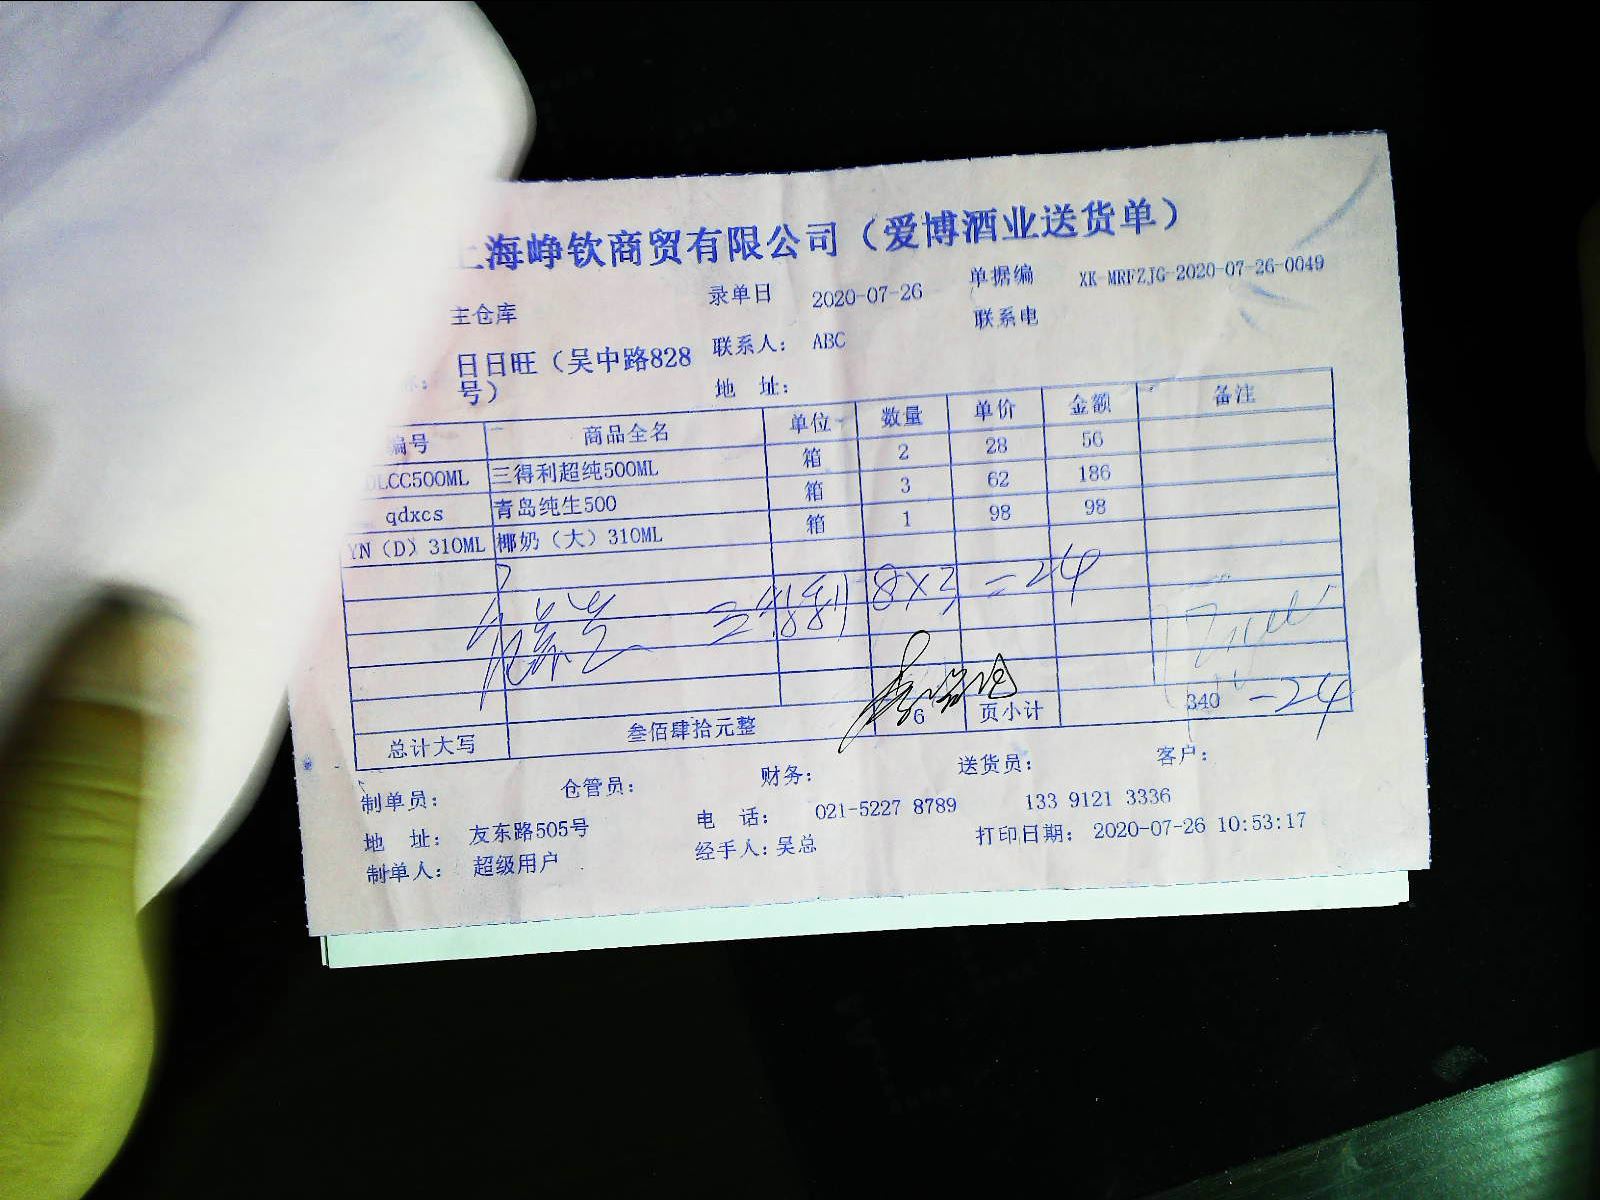 上海峥钦商贸有限公司（爱博酒业送货单）
主仓库 录单日 2020-07-26 单据编 XK-MRFZJG-2020-07-26-0049
日日旺（吴中路828号） 联系人： ABC 联系电
地 址：
编号 商品全名 单位 数量 单价 金额 备注
LCC500ML 三得利超纯500ML 箱 2 28 56
qdxcs 青岛纯生500 箱 3 62 186
YN（D）310ML 椰奶（大）310ML 箱 1 98 98
8×3 =24
总计大写 叁佰肆拾元整 6 页小计 340 -24
制单员： 仓管员： 财务： 送货员： 客户：
地 址： 友东路505号 电 话： 021-5227 8789 133 9121 3336
制单人： 超级用户 经手人：吴总 打印日期： 2020-07-26 10:53:17